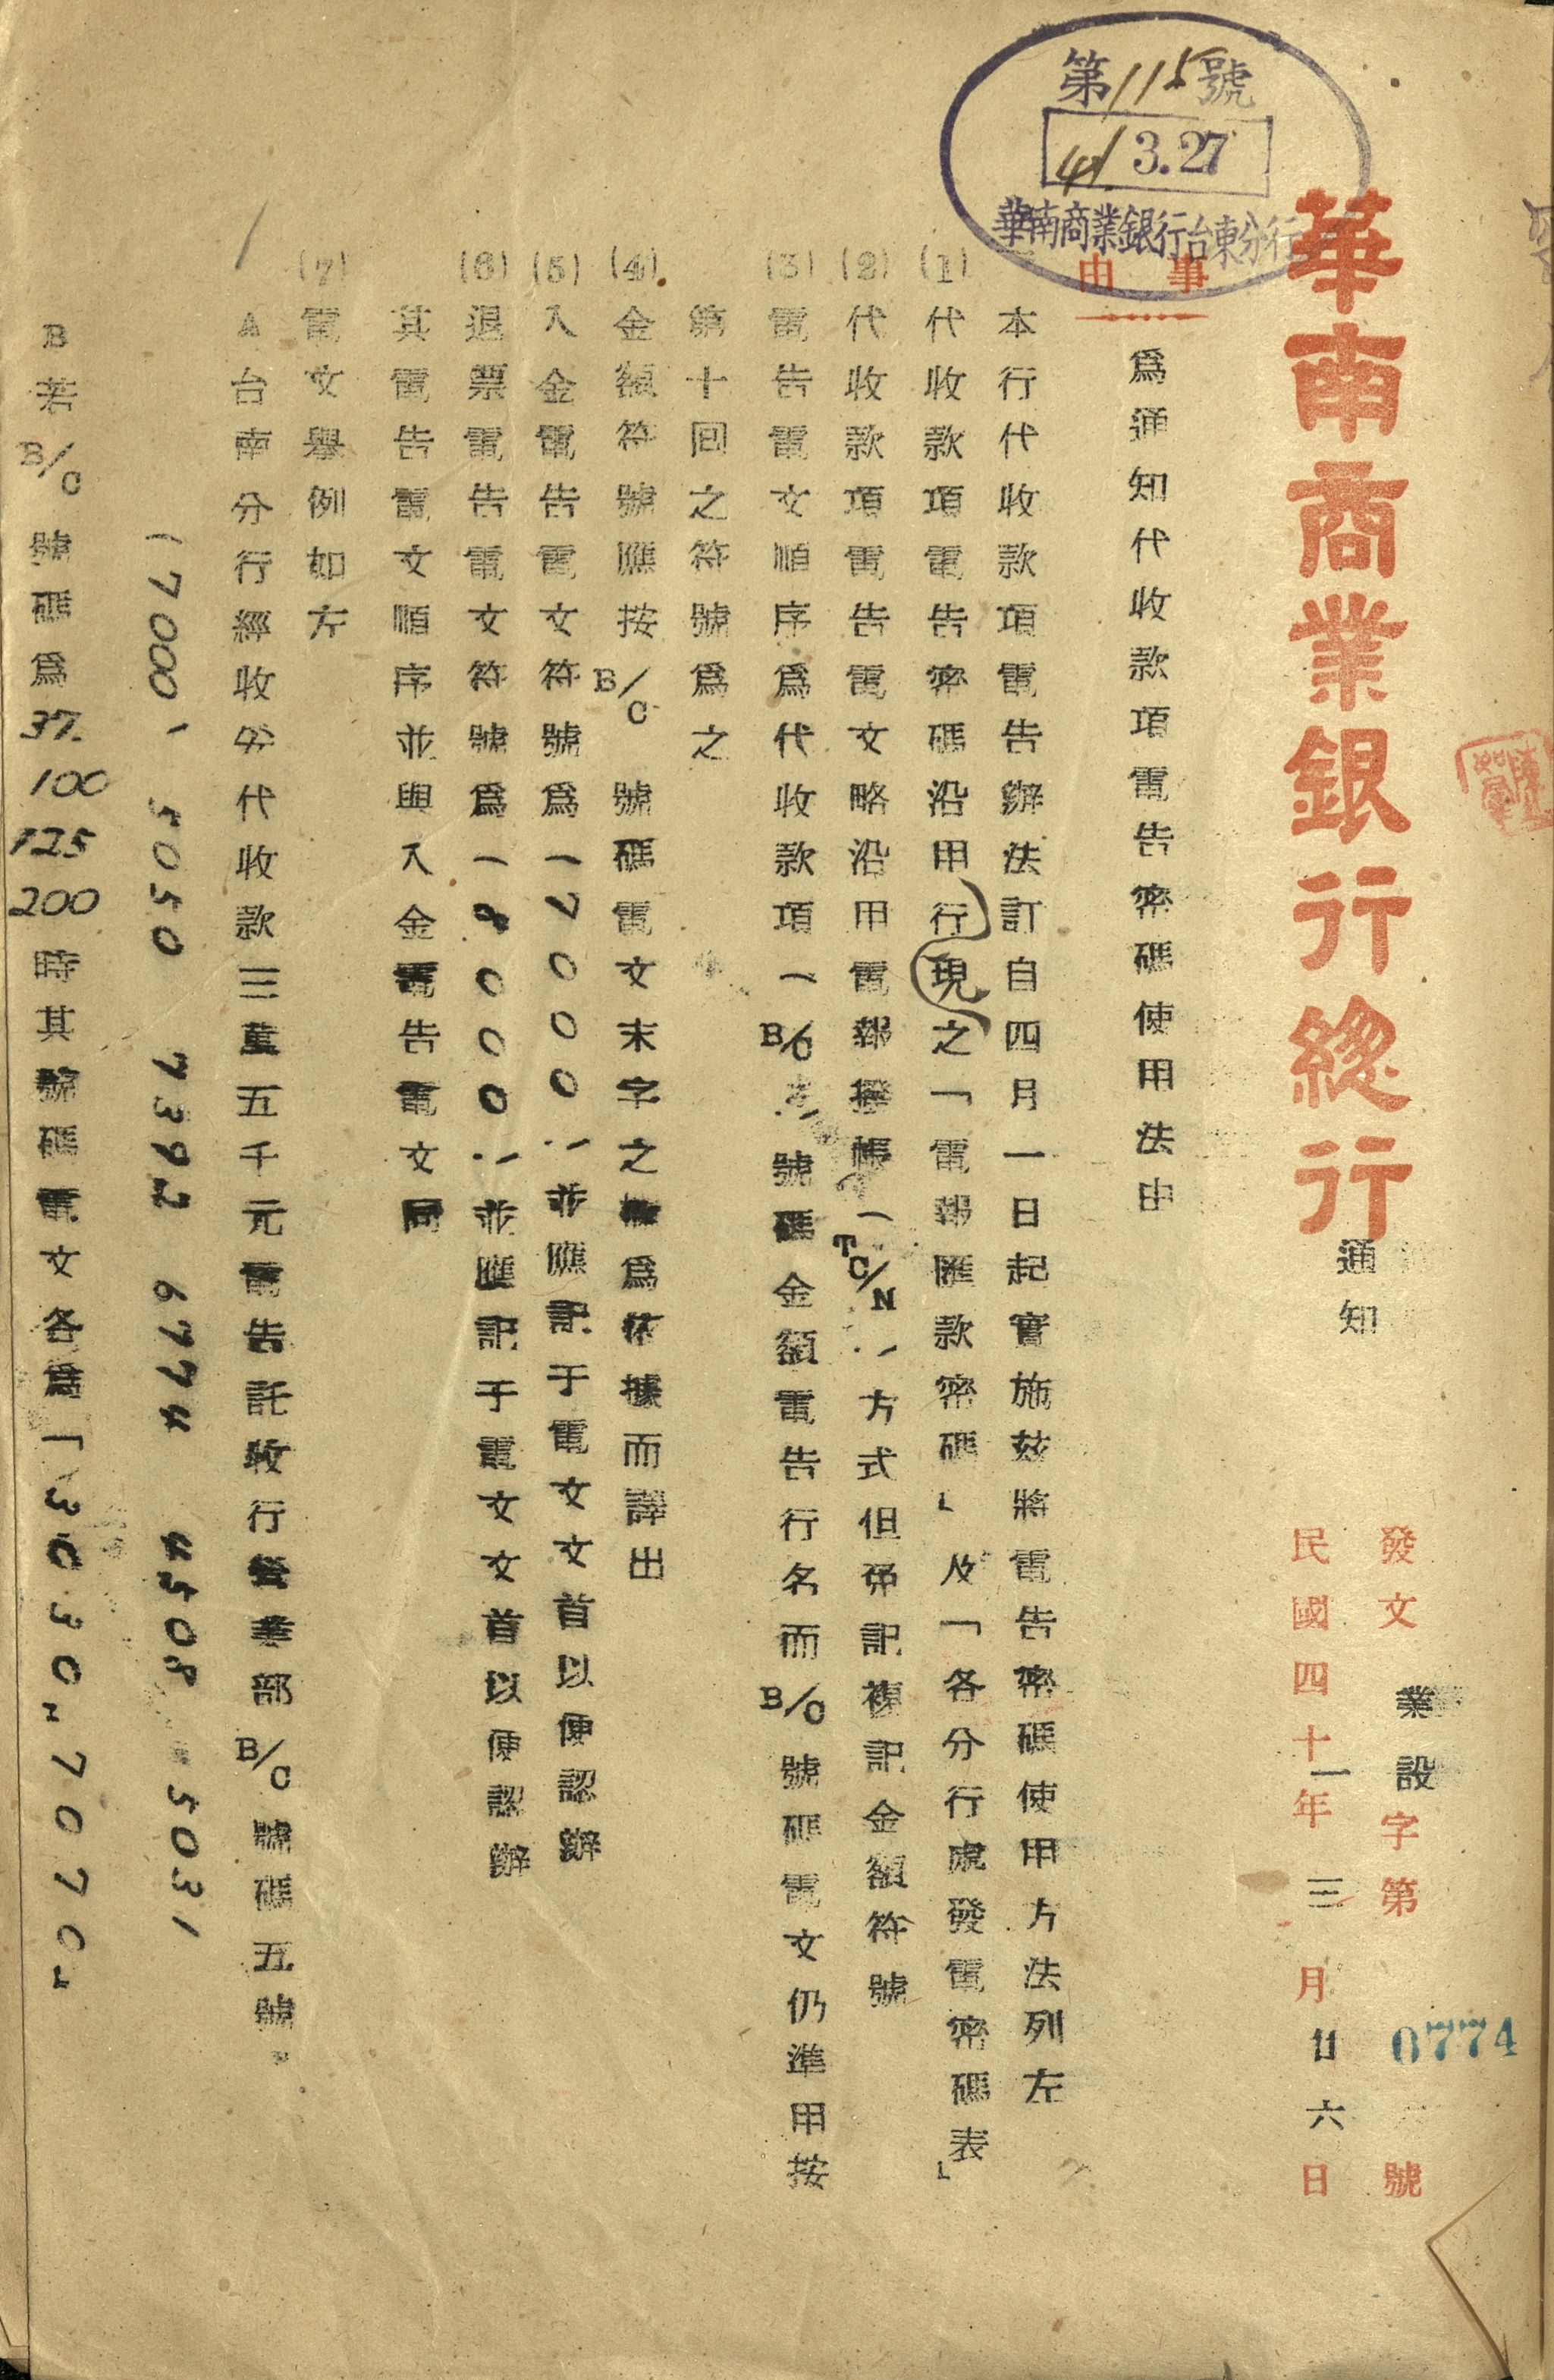 華南商業銀行總行
通知
發文業設字第0774號
民國四十一年三月廿六日
第115號
41 3.27
華南商業銀行台東分行
事由
爲通知代收款項電告密碼使用法由
本行代收款項電告辦法訂自四月一日起實施茲將電告密碼使用方法列左
(1)代收款項電告密碼沿用行現之「電報匯款密碼」及「各分行處發電密碼表」
(2)代收款項電告電文略沿用電報撥帳(TC/N)方式但毋記複記金額符號
(3)電告電文順序爲代收款項(B/C)號碼金額電告行名而B/C號碼電文仍準用按
第十回之符號爲之
(4)金額符號應按B/C號碼電文末字之 爲依據而譯出
(5)入金電告電文符號爲(7000)並應記于電文文首以便認辦
(6)退票電告電文符號爲(8000)並應記于電文文首以便認辦
其電告電文順序並與入金電告電文同
(7)電文舉例如左
A台南分行經收妥代收款三萬五千元電告託收行營業部B/C號碼五號
(7000、5050 7392 6774 4508 5031
B若B/C號碼爲37. 100 125 200時其號碼電文各爲「3030」「7070」